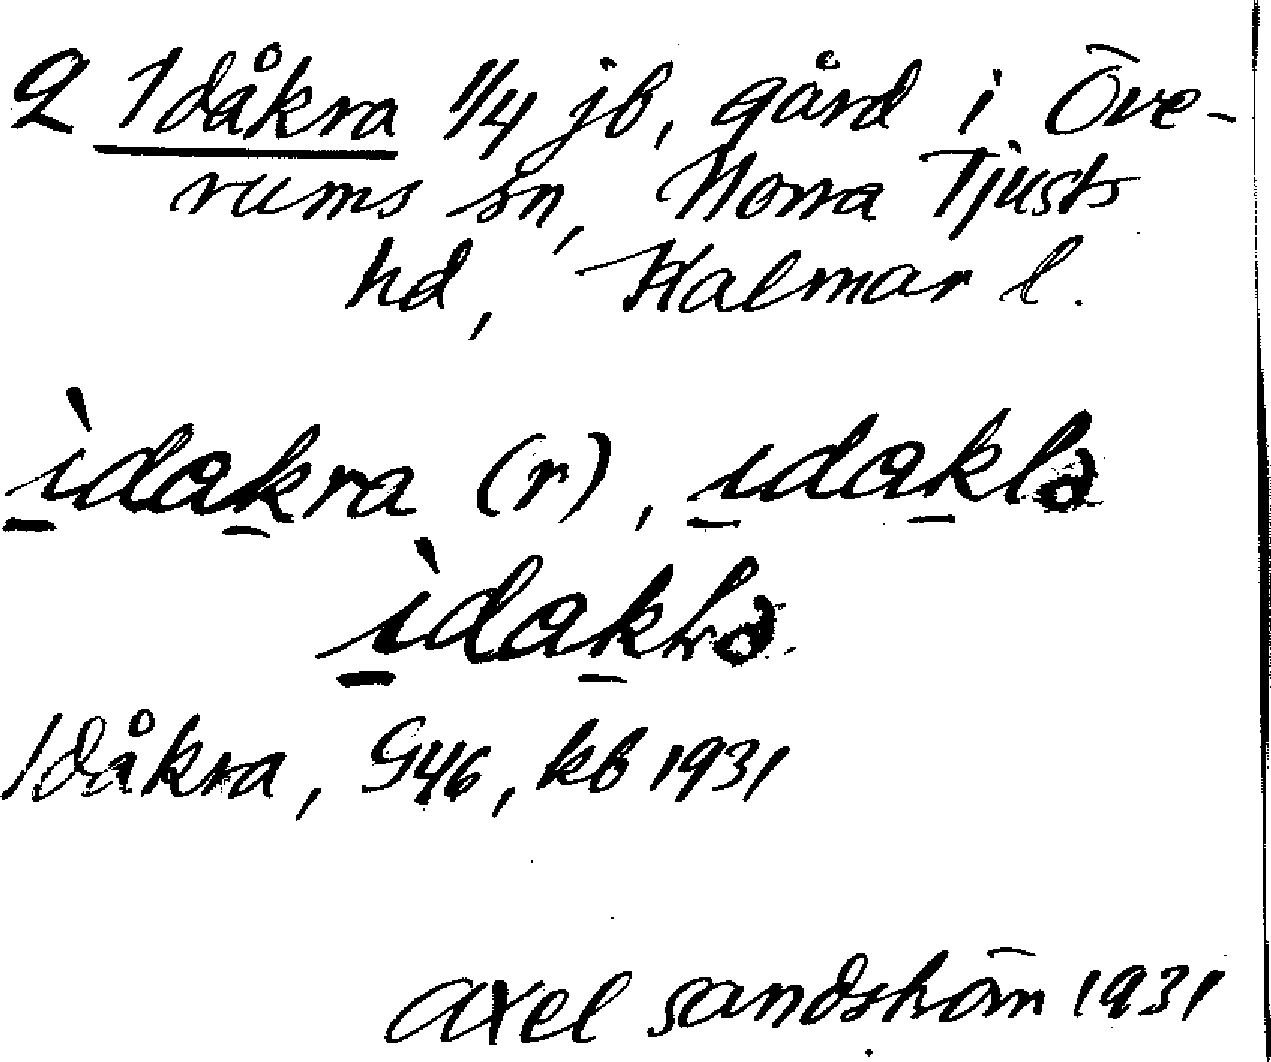 2 Idåkra 1/4 jb, gård i Öve-
rums sn, Norra Tjusts
hd, Kalmar l.
ìdakra (r), idaklə
ìdakrə.
Idåkra, G46, kb 1931
Axel Sandström 1931